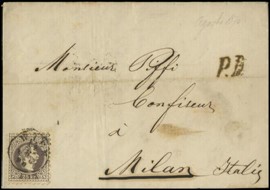 P.D
Monsieur Poffi
Confiseur
à
Milan Italie